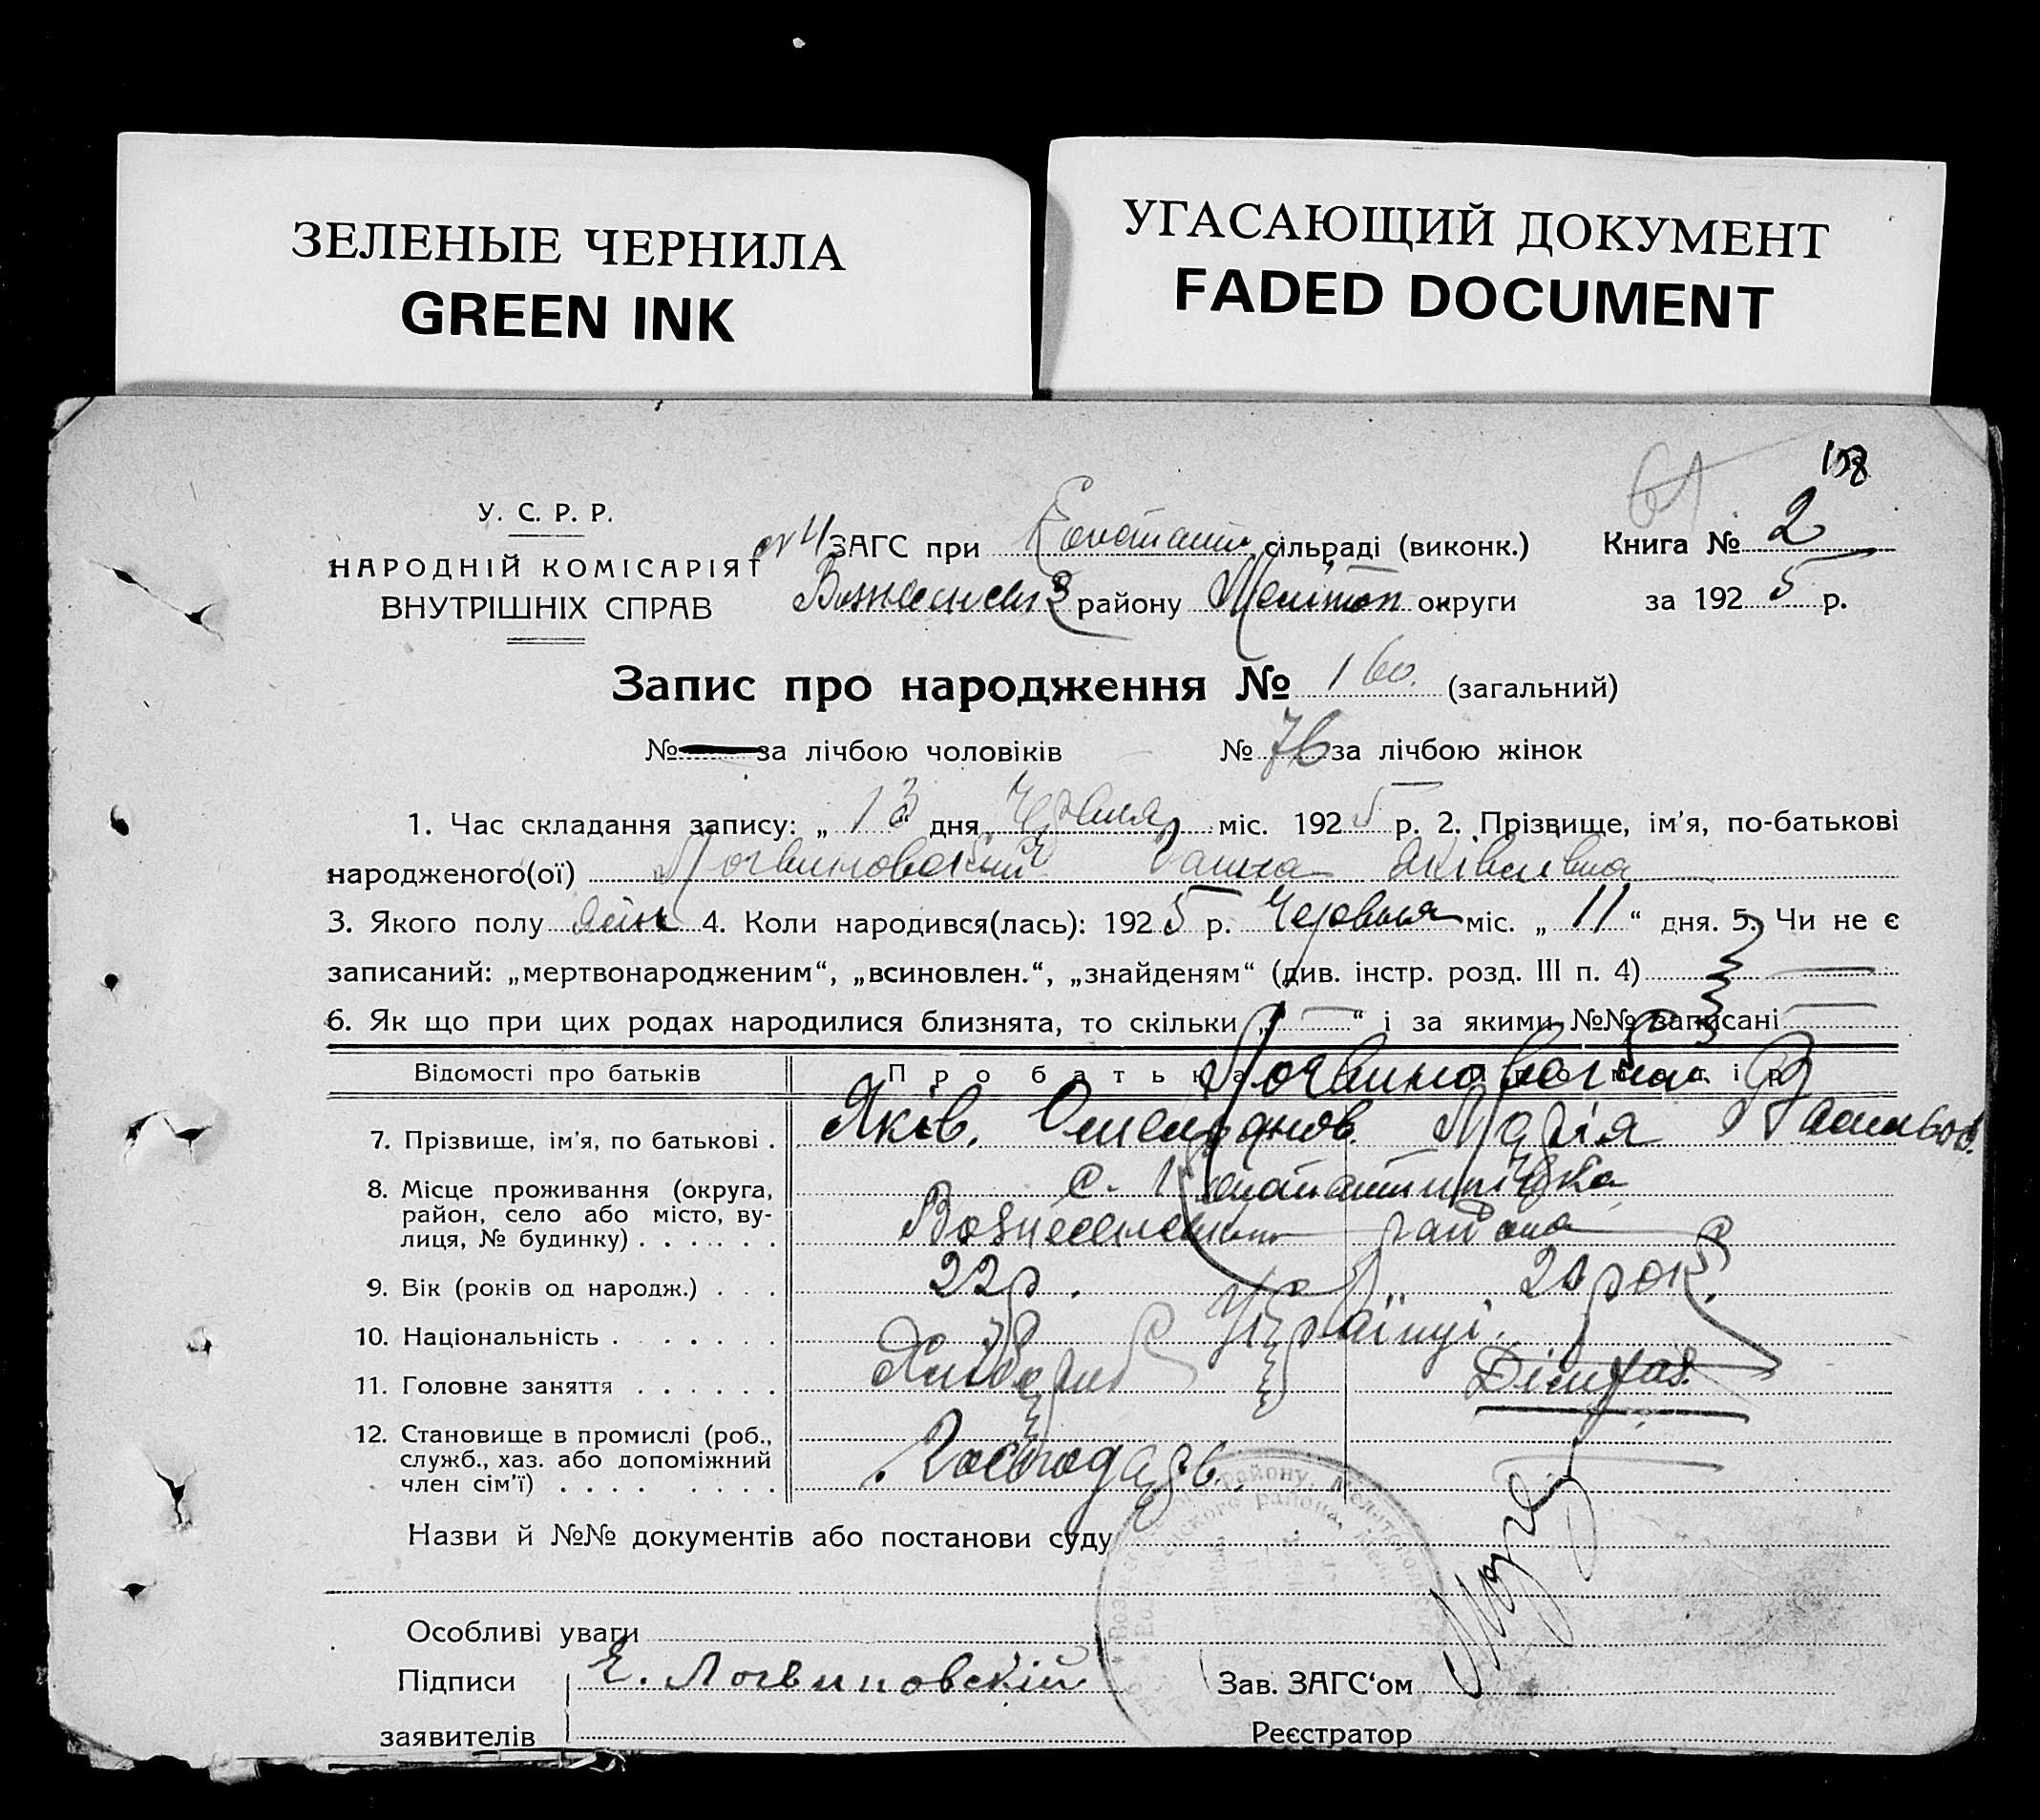 ЗЕЛЕНЫЕ ЧЕРНИЛА
GREEN INK
УГАСАЮЩИЙ ДОКУМЕНТ
FADED DOCUMENT
158
61
У. С. Р. Р.
НАРОДНІЙ КОМІСАРІЯТ
ВНУТРІШНІХ СПРАВ
ЗАГС при Констант. сільраді (виконк.)
Книга № 2
району Меліпоп округи
за 1925 р.
Запис про народження № 160. (загальний)
№ за лічбою чоловіків № 76 за лічбою жінок
1. Час складання запису: „ 13 дня Червня міс. 1925 р. 2. Прізвище, ім'я, по-батькові
народженого(ої) Логвиновский Ганна Яківлівна
3. Якого полу жін 4. Коли народився(лась): 1925 р. Червня міс. „ 11 “ дня. 5. Чи не є
записаний: „мертвонародженим“, „всиновлен.“, „знайденям“ (див. інстр. розд. III п. 4)
6. Як що при цих родах народилися близнята, то скільки „ — “ і за якими №№ записані
Відомості про батьків
Про батька
Логвиновска
7. Прізвище, ім'я, по батькові .
Яків. Степанов. Марія
8. Місце проживання (округа,
район, село або місто, ву-
лиця, № будинку) . . . . . .
с. Констаптинівка
района
9. Вік (років од народж.) . . .
22р. 20 рок.
10. Національність . . . . . . .
Українці.
11. Головне заняття . . . . . .
Хлібороб
12. Становище в промислі (роб.,
служб., хаз. або допоміжний
член сім'ї) . . . . . . . .
Господарь.
Назви й №№ документів або постанови суду
Особливі уваги
Підписи
Е. Логвиновскій
Зав. ЗАГС‘ом
заявителів
Реєстратор